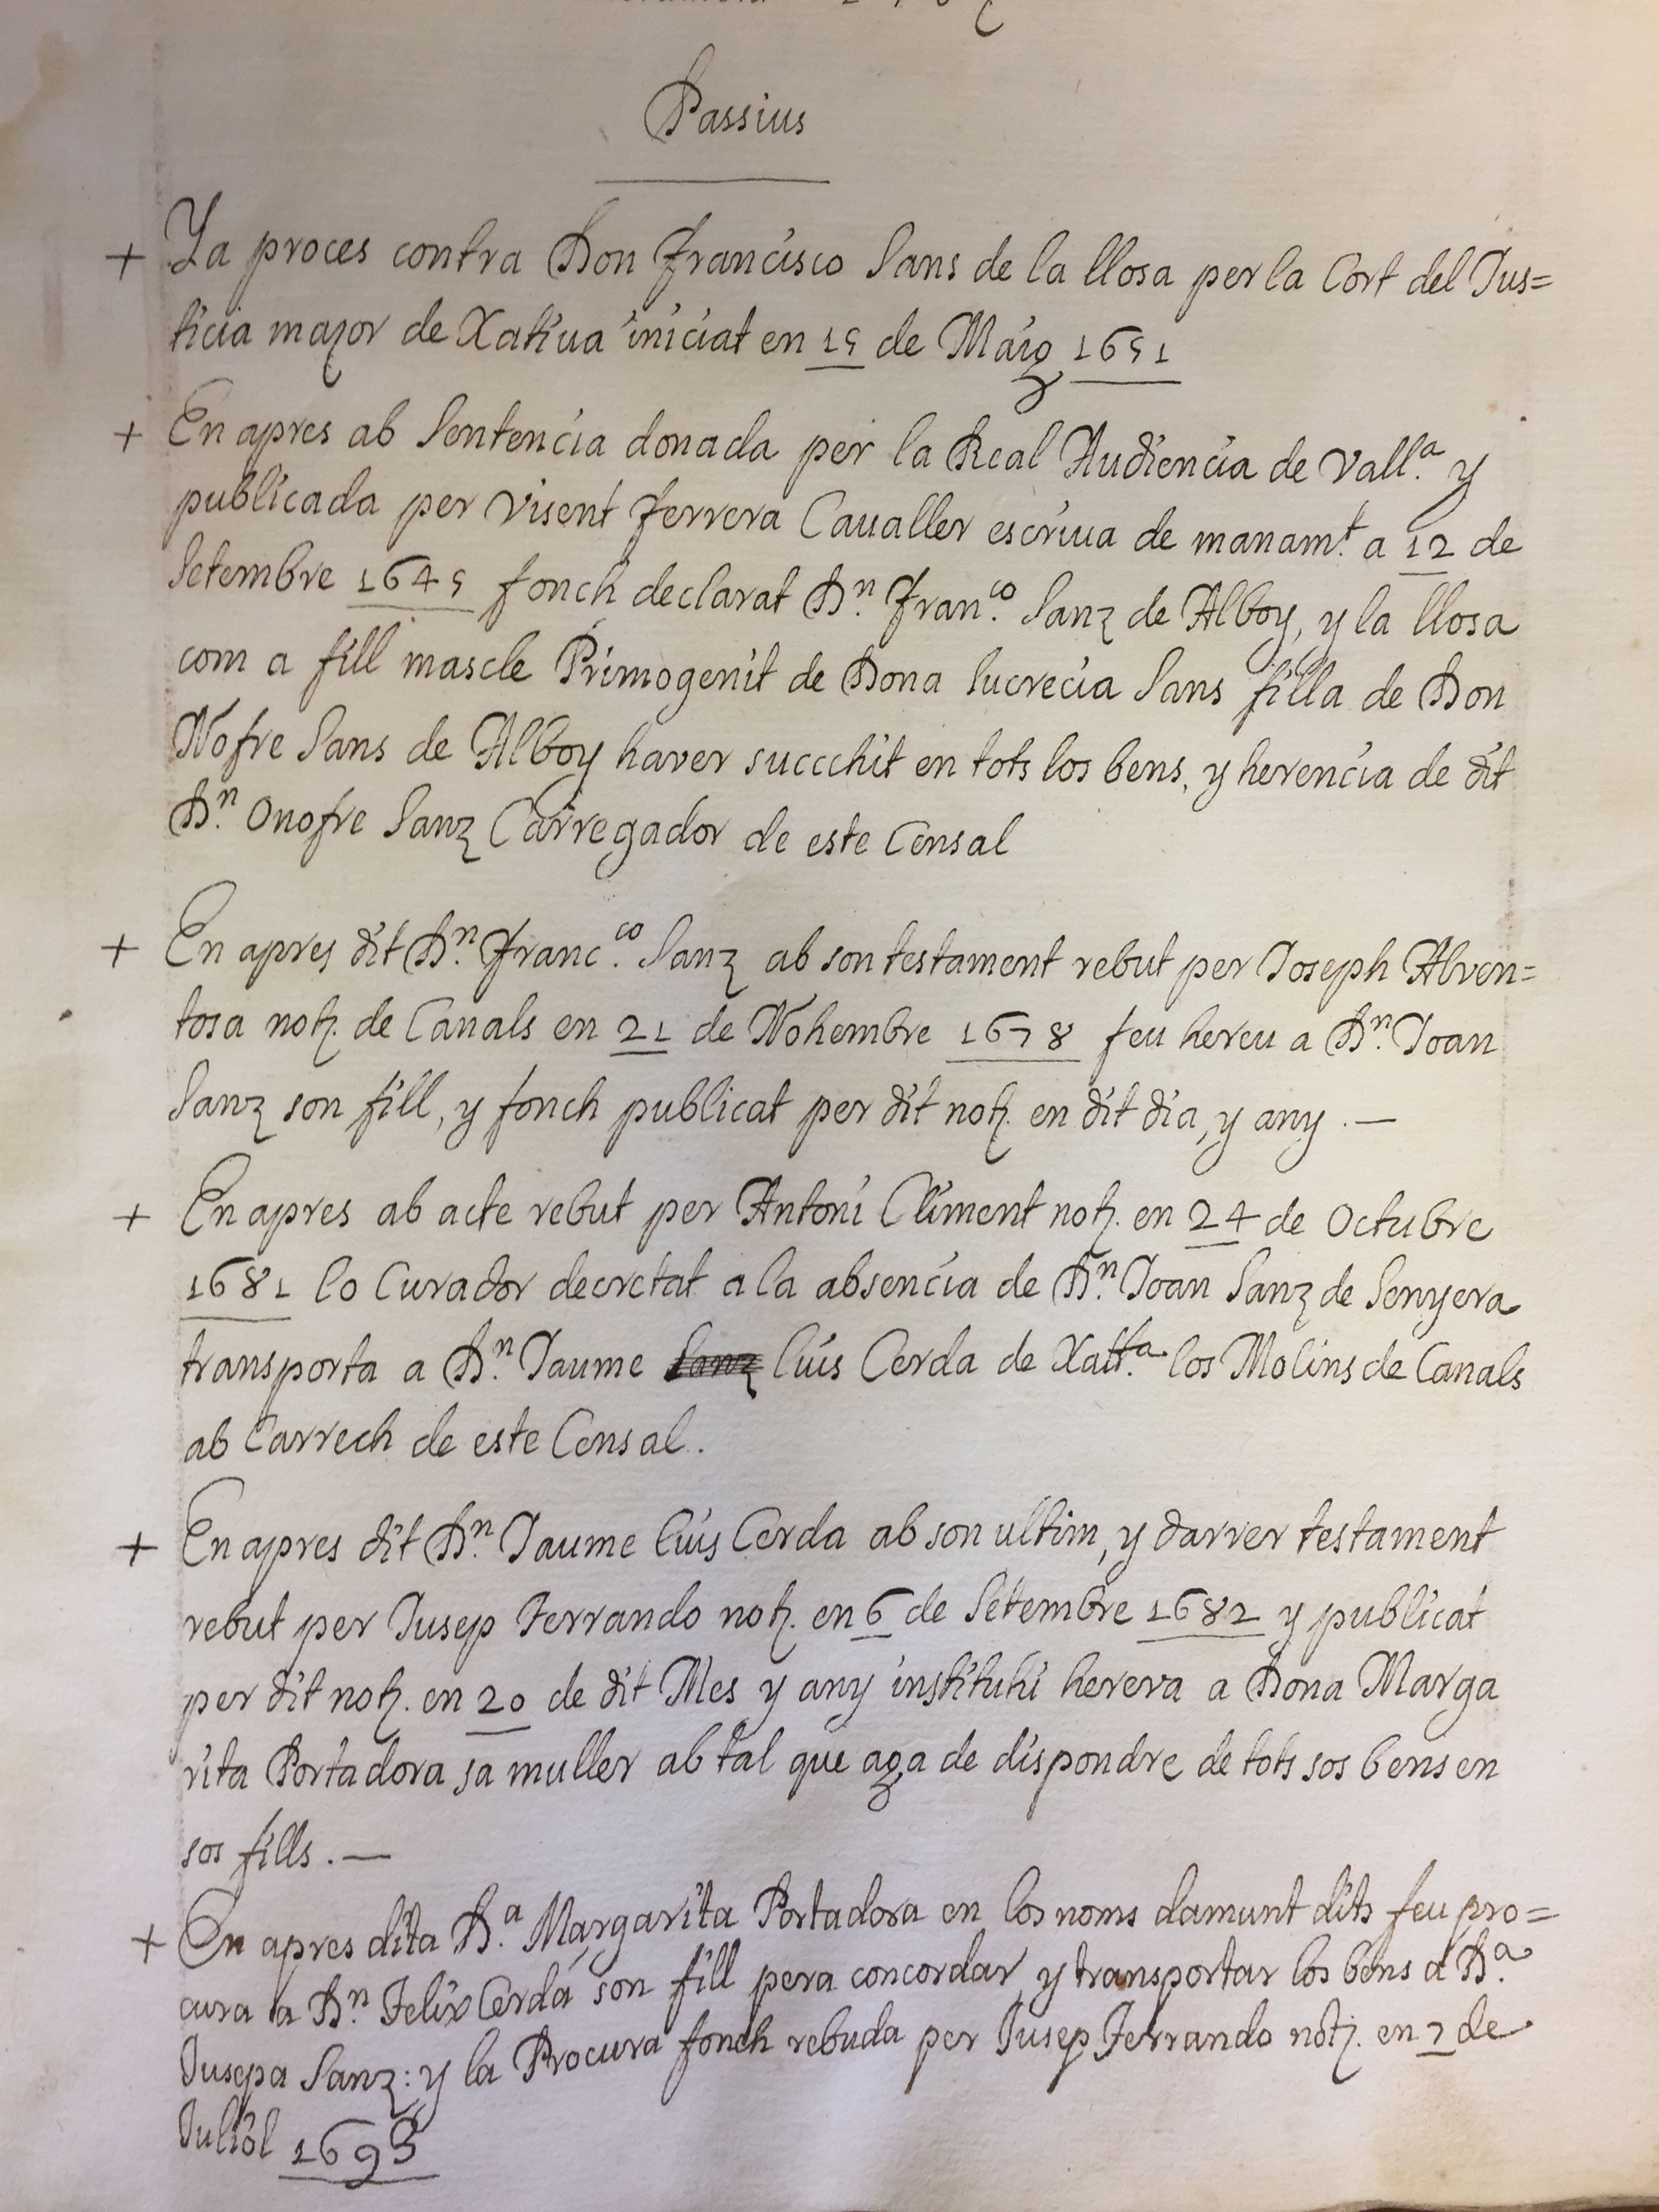 Passius
+ Ya proces contra Don Francisco Sans de la llosa per la Cort del Jus=
ticia major de Xatiua iniciat en 15 de Març 1651
+ En apres ab Sentencia donada per la Real Audiencia de Vall.ª y
publicada per Visent ferrera Caualler escriua de manam.t a 12 de
Setembre 1645 fonch declarat D.n Fran.co Sanz de Alboy, y la llosa
com a fill mascle Primogenit de Dona lucrecia Sans filla de Don
Nofre Sans de Alboy haver succehit en tots los bens, y herencia de dit
D.n Onofre Sanz Carregador de este Censal
+ En apres dit D.n Franc.co Sanz ab son testament rebut per Joseph Alven=
tosa not. de Canals en 21 de Nohembre 1678 feu hereu a D.n Joan
Sanz son fill, y fonch publicat per dit not. en dit dia, y any . —
+ En apres ab acte rebut per Antoni Climent not. en 24 de Octubre
1681 lo Curador decretat a la absencia de D.n Joan Sanz de Senyera
transporta a D.n Jaume Sanz lluis Cerda de Xatt.ª los Molins de Canals
ab Carrech de este Censal.
+ En apres dit D.n Jaume lluis Cerda ab son ultim, y darrer testament
rebut per Jusep Ferrando not. en 6 de Setembre 1682 y publicat
per dit not. en 20 de dit Mes y any instituhi herera a Dona Marga
rita Portadora sa muller ab tal que aja de dispondre de tots sos bens en
sos fills. —
+ En apres dita D.ª Margarita Portadora en los noms damunt dits feu pro=
cura a D.n Felix Cerdá son fill pera concordar, y transportar los bens a D.ª
Jusepa Sanz: y la Procura fonch rebuda per Jusep Ferrando not. en 7 de
Juliol 1693